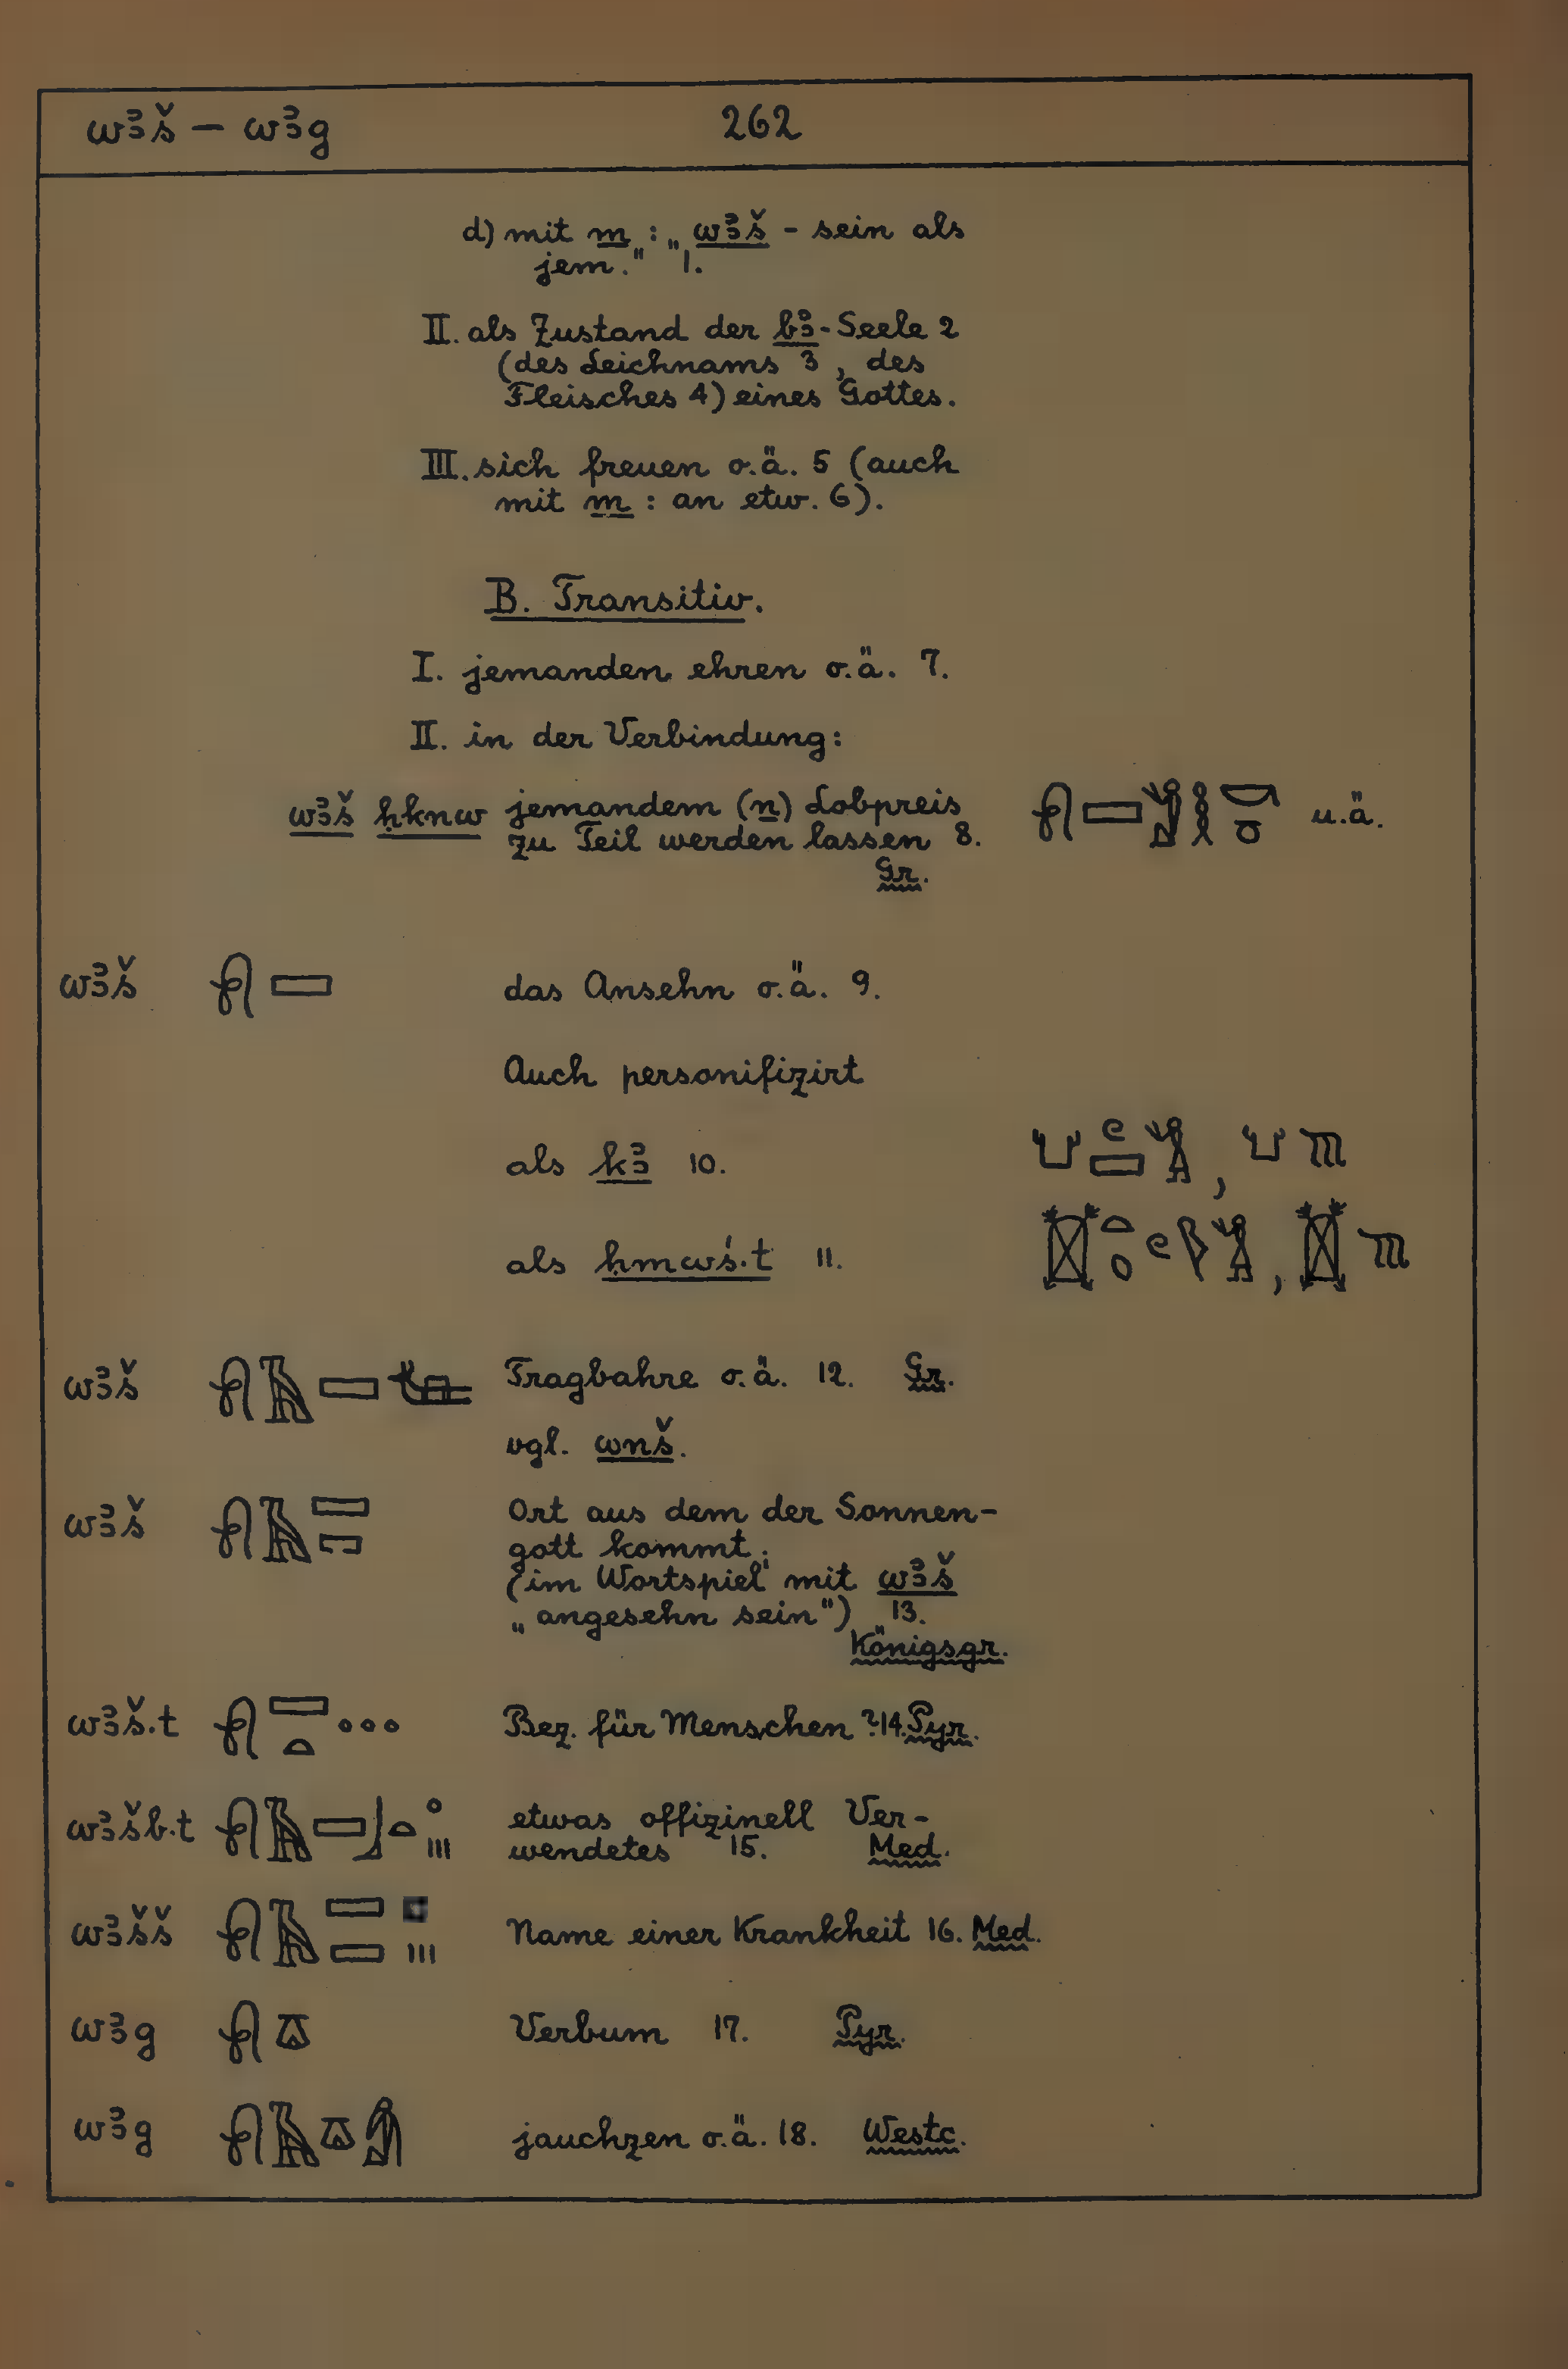 wꜣš – wꜣg 262
d) mit m : „wꜣš - sein als
jem." 1.
II. als Zustand der bꜣ-Seele 2
(des Leichnams 3, des
Fleisches 4) eines Gottes.
III. sich freuen o.ä. 5 (auch
mit m : an etw. 6).
B. Transitiv.
I. jemanden ehren o.ä. 7.
II. in der Verbindung:
wꜣš ḥknw jemandem (n) Lobpreis u.ä.
zu Teil werden lassen 8.
Gr.
wꜣš das Ansehn o.ä. 9.
Auch personifizirt
als kꜣ 10.
als ḥmwś.t 11.
wꜣš Tragbahre o.ä. 12. Gr.
vgl. wnš.
wꜣš Ort aus dem der Sonnen-
gott kommt.
(im Wortspiel mit wꜣš
„angesehn sein") 13.
Königsgr.
wꜣš.t Bez. für Menschen ? 14. Pyr.
wꜣšb.t etwas offizinell Ver-
wendetes 15. Med.
wꜣšš Name einer Krankheit 16. Med.
wꜣg Verbum 17. Pyr.
wꜣg jauchzen o.ä. 18. Westc.